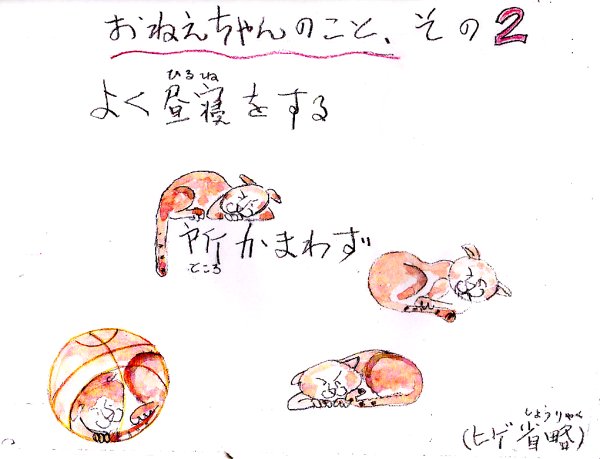 おねえちゃんのこと、その2
ひるね
よく昼寝をする
所かまわず
ところ
しょうりゃく
(ヒゲ省略)